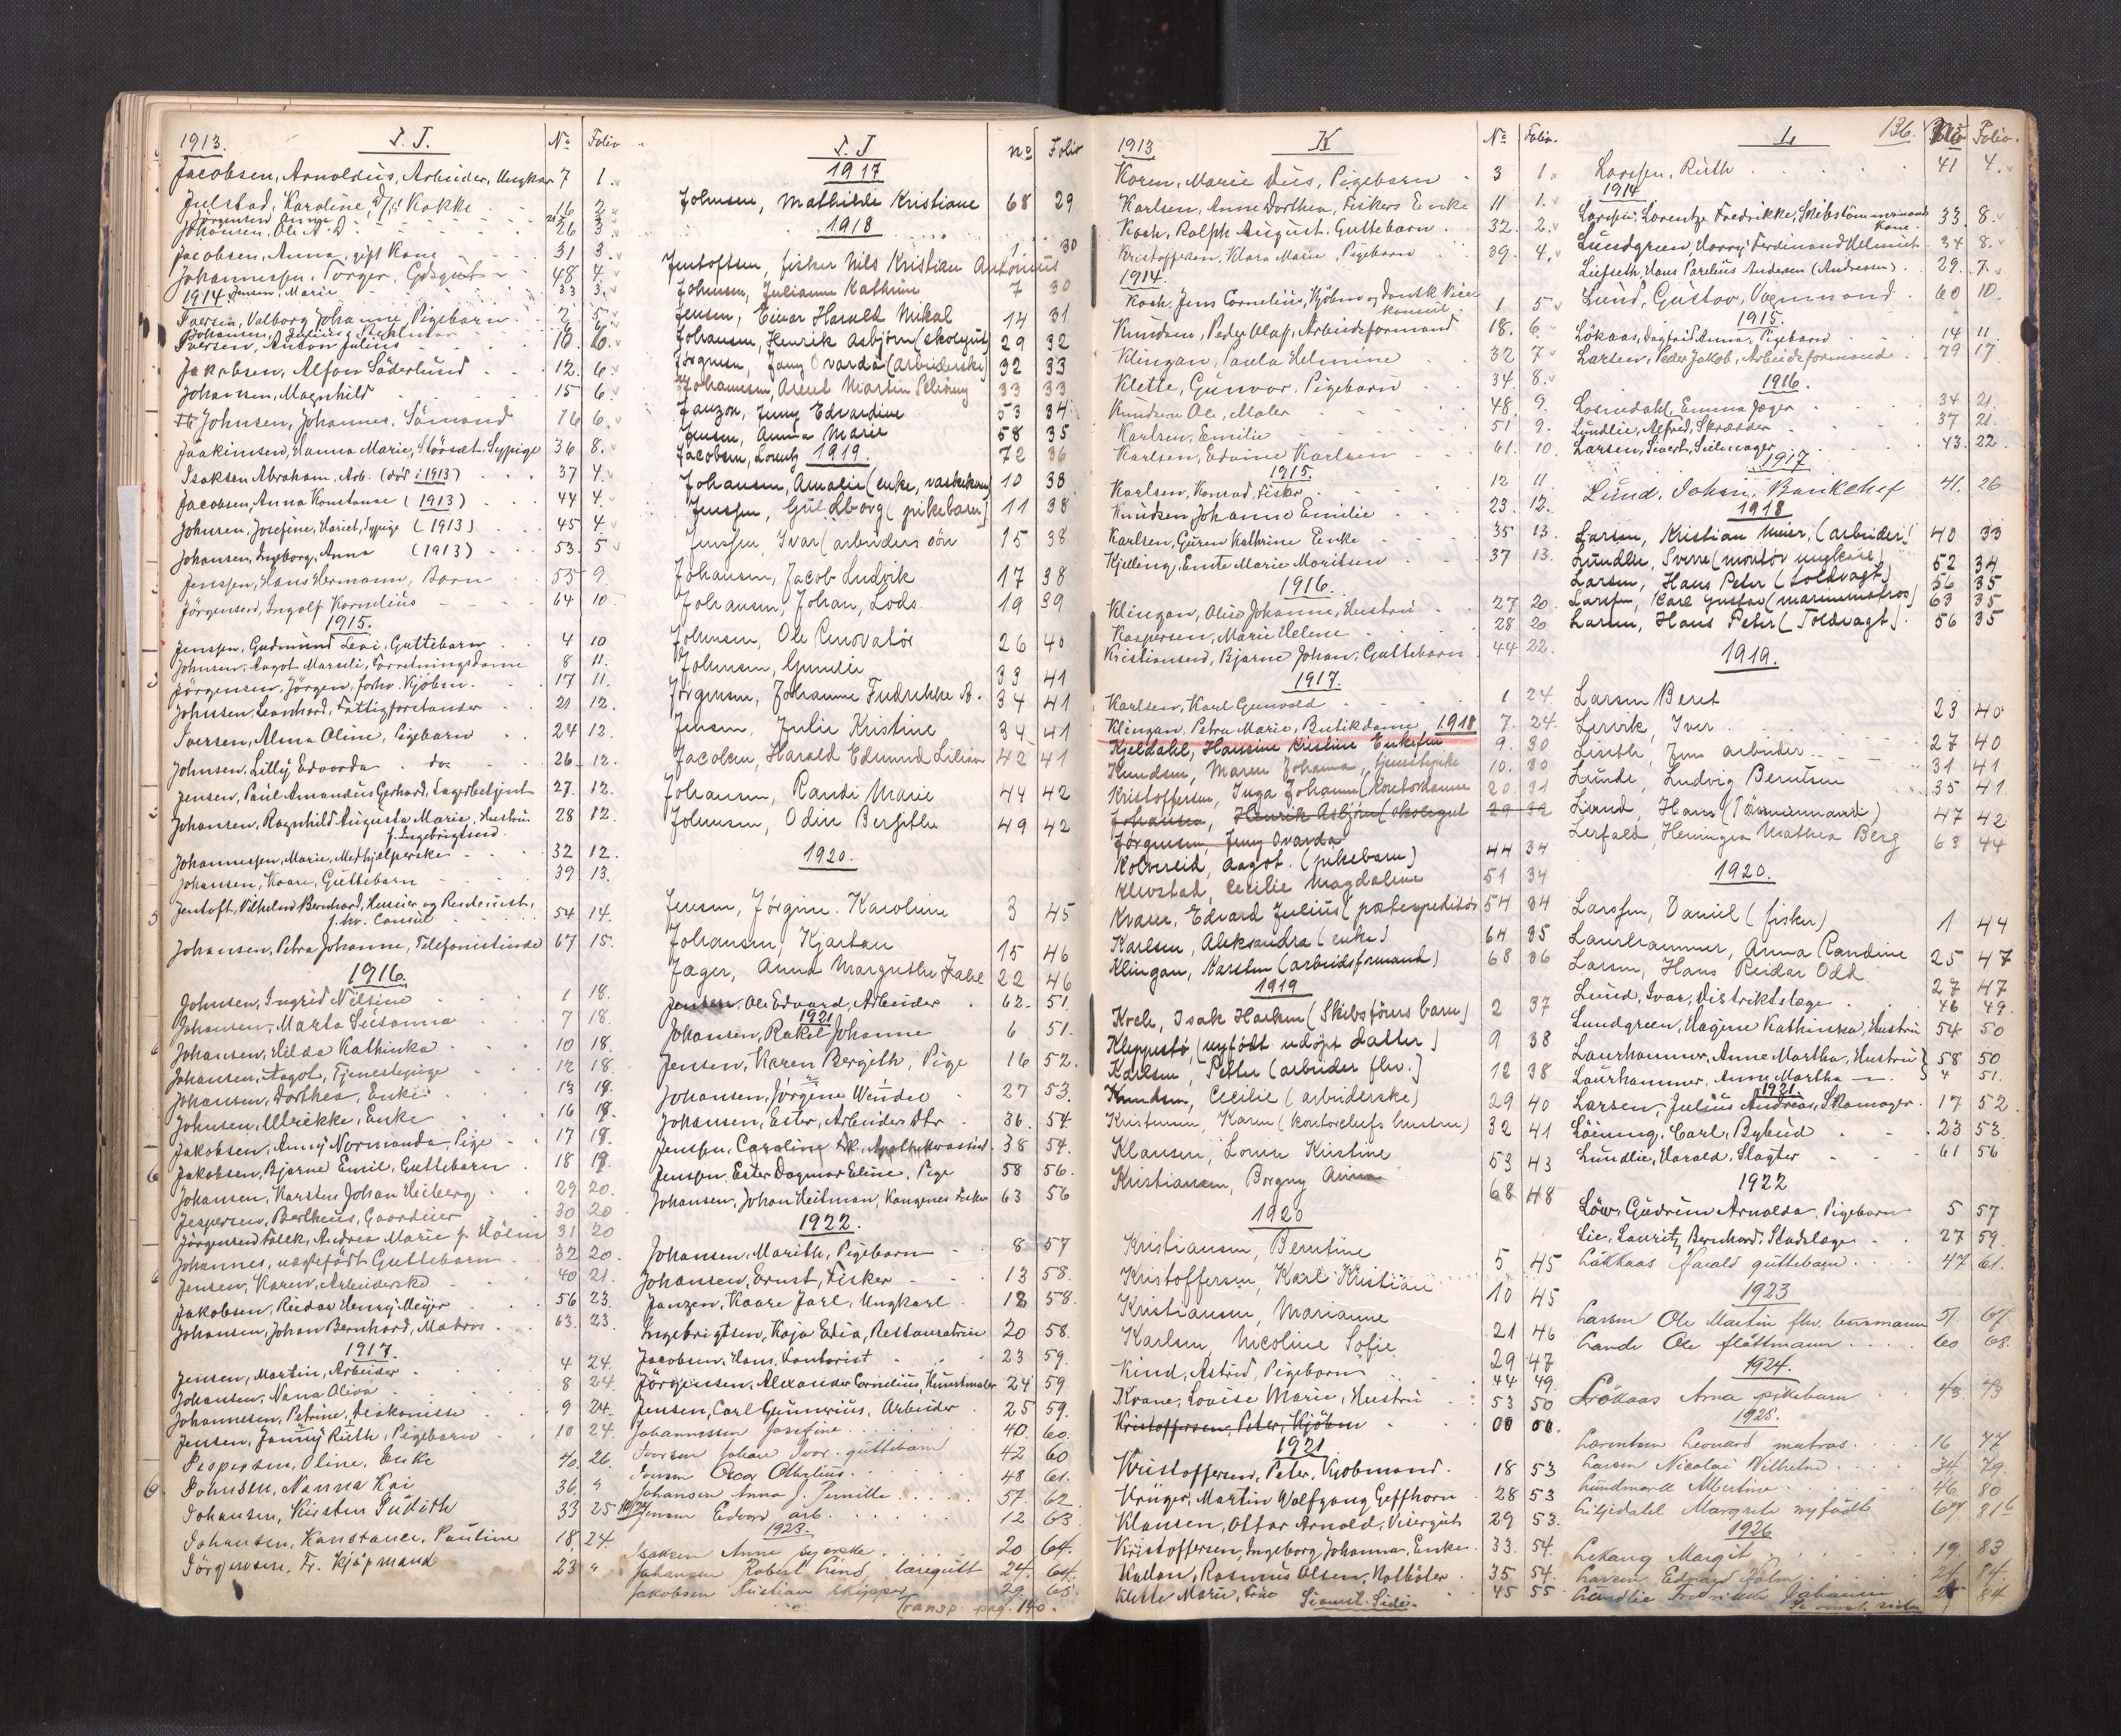 1913. I. J. No Folio
Jacobsen, Arnoldus, Arbeider, Ungkar 7 1.
Julstad, Karoline, Kokke 16 2.
Jörgensen Anna
Johansen, Ole A. D. 26 3.
Jacobsen, Anna, gift Kone 31 3.
Johannessen, Torger, Gdsgut 48 4.
1914 Jensen, Marie 33 3.
Iversen, Valborg Johanne, Pigebarn 2 5.
Iversen, Anton Julius 10. 6.
Jakobsen, Alfon Söderlund 12. 6.
Johansen, Magnhild 15 6.
Johnsen, Johannes, Sömand 16 6.
Joakimsen, Hanna Marie, Störset. Sypige 36 8.
Isaksen Abraham, Arb. (död i 1913) 37 4.
Jacobsen, Anna Konstanse (1913) 44 4.
Johnsen, Josefine, Hariet, Sypige (1913) 45 4.
Johansen, Ingeborg, Anna (1913) 53. 5
Jenssen, Hans Hermann, Barn 55 9.
Jörgensen, Ingolf Kornelius 64 10
1915.
Jenssen, Gudmund Levi, Guttebarn 4 10
Johnsen, Aagot Marseli, Forretningsdame 8 11.
Jörgensen, Jörgen, forhv. Kjöbm. 17 11.
Johnsen, Leonhard, Fattigforstander 21 12.
Iversen, Alma Oline, Pigebarn 24 12.
Johnsen, Lilly Edvarda do 26. 12.
Jensen, Paul Amandus Gerhard, Lagerbetjent 27. 12.
Johansen, Ragnhild Augusta Marie, Hustru 28 12.
f. Ingebrigtsen.
Johannessen, Marie, Medhjælperske 32 12.
Johansen, Kaare, Guttebarn 39 13.
Jentoft, Vilhelm Bernhard, Huseier og
54 14.
Johansen, Petra Johanne, Telefonistinde 67 15.
1916
Johnsen, Ingrid Nilsine 1 18.
Johansen, Marta Susanna 7 18.
Johansen, Hilda Kathinka 10 18.
Johansen, Aagot, Tjenestepige 12 18.
Johansen, Dorthea, Enke 13 18.
Johnsen, Ulrikke, Enke 16 19.
Jakobsen, Anny Normanda, Pige 17 19.
Jakobsen, Bjarne Emil, Guttebarn 18 19.
Johansen, Karsten Johan Heiberg 29 20.
Jespersen, Bertheus, Gaardeier 30 20
Jörgensen Falck, Andrea Marie f. Holm 31 20
Johannes, uægtefödt Guttebarn 32 20.
Jensen, Karen, Arbeiderske 40 21.
Jakobsen, Reidar Henry Meyer 56 23.
Johansen, Johan Bernhard, Matros 63. 23.
1917.
Jensen, Martin, Arbeider 4 24.
Johansen, Nana Oliva 8 24.
Johannesen, Petrine, Diakonisse 9 24.
Jensen, Janny Ruth, Pigebarn 10 24.
Jespersen, Oline, Enke 40. 26.
Johnsen, Nanna Kai 36. "
Johansen, Kirsten Judith 33 25
Johansen, Konstance, Pauline 18. 24.
Jörgensen, Fr. Kjöpmand 23 "
I. J no Folio
1917
Johnsen, Mathilde Kristiane 68 29
1918
Jentoftsen, fisker Nils Kristian Antonius 1 30
Johnsen, Julianne Kathrine 7 30
Jensen, Einar Harald Mikal 14 31
Johansen, Henrik Asbjørn (skolegut) 29 32
Jørgensen, Jenny Ovarda (arbeiderske) 32 33
Johannesen, Arent Martin 33 33
Janzon, Jenny Edvardine 53 34
Jensen, Anna Marie 58 35
Jacobsen, Lorentz 1919. 72 36
Johansen, Amalie (enke, vaskekone) 10 38
Jenssen, Guldborg (pikebarn) 11 38
Jenssen, Ivar (arbeiders søn 15 38
Johansen, Jacob Ludvik 17 38
Johansen, Johan, Lods 19 39
Johnsen, Ole Renovatør 26 40
Johnsen, Gunelie 33 41
Jørgensen, Johanne Fredrikke B. 34 41
Jensen, Julie Kristine 34 41
Jacobsen, Harald Edmund Lilian 42 41
Johansen, Randi Marie 44 42
Johnsen, Odin Bergithe 49 42
1920.
Jensen, Jørgine Karoline 3 45
Johansen, Kjartan 15 46
Jæger, Anna Margrethe Zahl 22 46
Jensen, Ole Edvard, Arbeider 62. 51.
1921
Johansen, Rakel Johanne 6 51.
Jensen, Karen Bergith, Pige 16 52.
Johansen, Jörgine Wendeo 27 53.
Johansen, Ester, Arbeiders Dtr 36. 54.
Jenssen, Caroline 38 54.
Jensen, Ester Dagmar Eline, Pige 58 56.
Johansen, Johan Heilman, Kongenes Fisker 63 56
1922.
Johansen, Marith, Pigebarn 8 57
Johansen, Ernst, Fisker 13 58.
Janzen, Kaare Jarl, Ungkarl 18 58.
Ingebrigtsen, Kaja Edia, Restauratrice 20 58.
Jacobsen, Hans, Kontorist 23 59.
Jörgensen, Alexander Cornelius, Kunstmaler 24 59
Jensen, Carl Gunnerius, Arbeider 25 59.
Johannessen Josefine 40. 60.
Iversen Johan Ivar guttebarn 42 60
Oscar 48 61.
Johansen Anna J. Pernille 57. 62
Jensen Edvard arb. 12 63
1923.
Isaksen Anne syerske 20 64.
Johansen Robert Lind, læregutt 24. 64.
Jakobsen Kristian skipper 29. 65.
Transp. pag. 140.
1913 K No Folio.
Koren, Marie Dus, Pigebarn 3 1.
Karlsen, Anne Dorthea, Fiskers Enke 11 1.
Koch, Ralph August, Guttebarn 32. 2.
Kristoffersen, Klara Marie, Pigebarn 39. 4.
1914.
Koch, Jens Cornelius, Kjöbm. og dansk Vice konsul 1 5
Knudsen, Peder Olaff, Arbeidsformand 18. 6
Klingan, Paula Helmine 32 7
Klette, Gunvor, Pigebarn 34. 8.
Knudsen Ole, Maler 48 9.
Karlsen, Emilie 51 9.
Karlsen, Edvine Karlsen 61. 10
1915.
Karlsen, Konrad, Fisker 12 11.
Knudsen, Johanne Emilie 23. 12.
Karlsen, Guren Kathrine Enke 35 13.
Kjelleng, Ente Marie Moritsen 37 13.
1916.
Klingan, Olise Johanne, Hustru 27 20.
Kaspersen, Marie Helene 28 20
Kristiansen, Bjarne Johan, Guttebarn 44 22.
1917.
Karlsen, Karl Gunvald 1 24.
Klingan, Petra Marie, Butikdame 1918 7. 24.
Kjeldahl, Hansine Kristine Enkefru 9. 30
Knudsen, Maren Johanna, tjenestpike 10. 30
Kristoffersen, Inga Johanne (Kontordame 20. 31
Johansen, Henrik Asbjørn (skolegut 29 32
Jørgensen, Jenny Ovarda
Kolvereid, Aagot. (pikebarn) 44 34
Klevstad, Cecilie Magdaline 51 34
Kvaser, Edvard Julius (postexpeditør 54 34
Karlsen, Aleksandra (enke) 64 35
Klingan, Karsten (arbeidsformand) 68 36
1919
Kreh, Isak Haaken (Skibsförers barn) 2 37
Kleppestö, (nyfödt udöpt datter) 9 38
Karlsen, Petter (arbeider fhv.) 12 38
Knudsen, Cecilie (arbeiderske) 29 40
Kristensen, Karen (kontorchefs hustru) 32 41
Klausen, Lovise Kristine 53 43
Kristiansen, Borgny Anna 68 48
1920
Kristiansen, Berntine 5 45
Kristoffersen, Karl Kristian 10 45
Kristiansen, Marianne 21 46
Karlsen, Nicoline Sofie 29 47
Kind, Astrid, Pigebarn 44 49.
Kvane, Lovise Marie, Hustru 53 50
Kristoffersen, Peter, Kjöbm 00 00.
1921
Kristoffersen, Peter, Kjöbmand. 18 53
Krüger, Martin Wolfgang Geffhorn 28 53
Klausen, Ottar Arnold, Visergut 29 53.
Kristoffersen, Ingeborg Johanna, Enke 33. 54.
Kallan, Rasmus Olsen, Notböter 35 54.
Klette Marie, Frue 45 55
Se omst. Side.
L 136. No Folio.
Larssen, Ruth 41 4.
1914
Larssen, Lorentze Fredrikke, Skibstömmermands Kone 33. 8.
Lundgreen, Harry Ferdinand Helmut 34 8.
Liefseth, Hans Parelius Andersen (Andreasen) 29. 7.
Lund, Gustav, Vognmand 60 10.
1915.
Lökaas, Dagfrid Anna, Pigebarn 14 11
Larsen, Peder Jakob, Arbeidsformand 79 17
1916.
Losnedahl, Emma Jæger 34 21
Lundlie, Alfred, Skrædder 37 21.
Larsen, Sivert, Seilmager 43. 22.
1917
Lund, Johan, Bankchef 41. 26
1918
Larsen, Kristian Meier, (arbeider) 40 33
Lundlie, Sverre (montör ungkarl) 52 34
Larsen, Hans Peter (toldvagt) 56 35
Larssen, Karl Gustav (marinematros) 63 35
Larsen, Hans Peter (Toldvagt) 56 35
1919.
Larsen Beret 23 40
Lervik, Iver 27 40
Liseth, Jens arbeider 31 41
Lunde, Ludvig Berntsen 35 41
Lund, Hans (Tømmermand) 47 42
Lerfald, Henninga Mathea Berg 63 44
1920.
Larssen, Daniel (fisker) 1 44
Laurhammer, Anna Randine 25 47
Larsen, Hans Reidar Odd 27 47
Lund, Ivar, distriktslæge 46 49.
Lundgreen, Hagine Kathinka, Hustru 54 50
Laurhammer, Anne Martha, Hustru 58 50
Laurhammer, Anne Martha 4 51.
1921
Larsen, Julius Andreas, Skomager 17 52.
Löining, Carl, Bybud 23 53.
Lundlie, Harald, Slagter 61 56
1922
Löw, Gudrun Arnolda, Pigebarn 5 57
Lie, Lauritz Bernhard, Stadslæge 27 59.
Lökkaas Harald guttebarn 47 61.
1923
Larsen Ole Martin fhv. husmann 51. 67
Lande Ole fløttmann 60 68.
1924.
Lökaas Arna pikebarn 43. 73
1925.
Lorentsen Leonard matros 16 77
Larsen Nicolai Vilhelm 34 79
Lundmark Albertine 46 80
Liljedahl Margrete nyfödt 67 81
1926
Lekang Margit 19 83
Larsen Edvard Holm 24 84.
Lundlie Fredrikke Johansen 25 84
Se omst. side